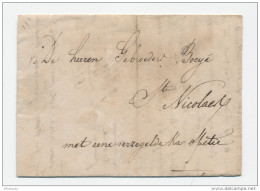 De heeren Gebroeders Boeyé
St Nicolaes
met eene verzegelde